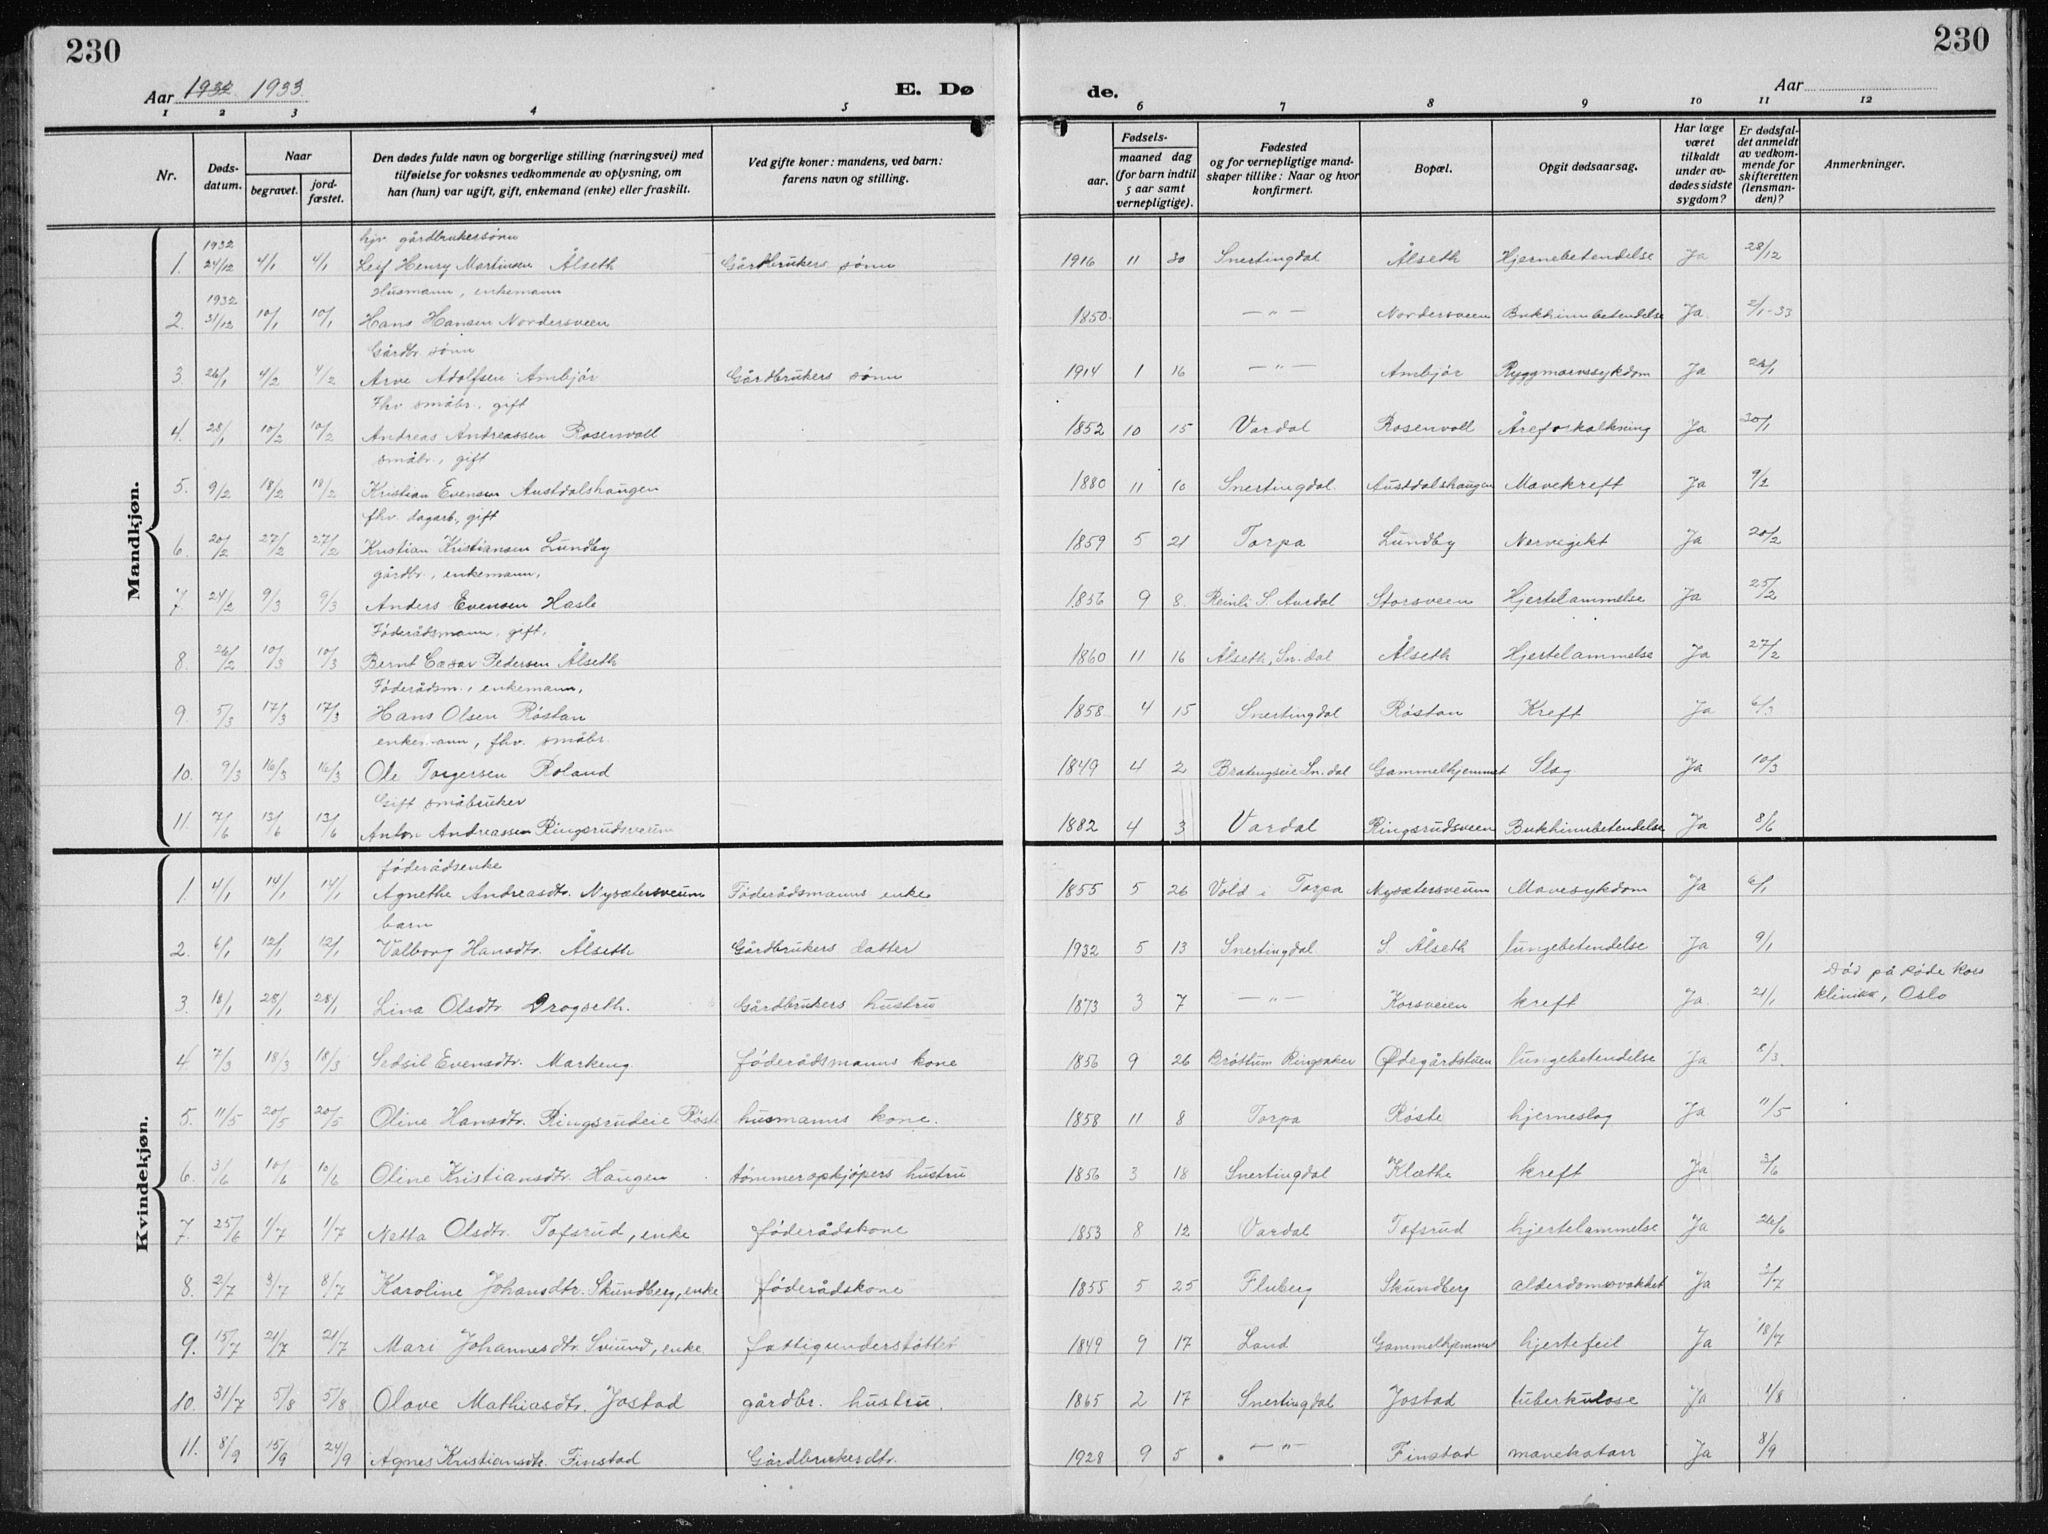 230
230
Aar 1932 1933
E. Dø
de.
Aar
1 2 3 4 5 6 7 8 9 10 11 12
Nr.
Døds-
datum.
Naar
begravet.
jord-
fæstet.
Den dødes fulde navn og borgerlige stilling (næringsvei) med
tilføielse for voksnes vedkommende av oplysning, om
han (hun) var ugift, gift, enkemand (enke) eller fraskilt.
Ved gifte koner: mandens, ved barn:
farens navn og stilling.
Fødsels-
aar.
maaned dag
(for barn indtil
5 aar samt
vernepligtige).
Fødested
og for vernepligtige mand-
skaper tillike: Naar og hvor
konfirmert.
Bopæl.
Opgit dødsaarsag.
Har læge
været
tilkaldt
under av-
dødes sidste
sygdom?
Er dødsfal-
det anmeldt
av vedkom-
mende for
skifteretten
(lensman-
den)?
Anmerkninger.
Mandkjøn.
1932 hjv. gårdbrukersønn
1. 24/12 4/1 4/1 Leif Henry Martinsen Ålseth Gårdbrukers sønn 1916 11 30 Snertingdal Ålseth Hjernebetendelse Ja 28/12
1932 Husmann, enkemann
2. 31/12 10/1 10/1 Hans Hansen Nordersveen 1850. —"— Nordersveen Bukhinnbetendelse Ja 2/1-33
Gårdbr. sønn
3. 26/1 4/2 4/2 Arve Adolfsen Ambjør Gårdbrukers sønn 1914 1 16 —"— Ambjør Ryggmarvssykdom Ja 28/1
Fhv. småbr., gift
4. 28/1 10/2 10/2 Andreas Andreassen Rosenvoll 1852 10 15 Vardal Rosenvoll Åreforkalkning Ja 30/1
småbr., gift
5. 9/2 18/2 18/2 Kristian Evensen Austdalshaugen 1880 11 10 Snertingdal Austdalshaugen Mavekreft Ja 9/2
fhv. dagarb., gift
6. 20/2 27/2 27/2 Kristian Kristiansen Lundby 1859 5 21 Torpa Lundby Nervegikt Ja 20/2
gårdbr., enkemann,
7. 24/2 9/3 9/3 Anders Evensen Hasle 1856 9 8. Reinli S. Aurdal Storsveen Hjertelammelse Ja 25/2
Føderådsmann, gift,
8. 26/2 10/3 10/3 Bernt Casar Pedersen Ålseth 1860 11 16 Ålseth, Sn.dal Ålseth Hjertelammelse Ja 27/2
Føderådsm., enkemann,
9. 5/3 17/3 17/3 Hans Olsen Røstan 1858 4 15 Snertingdal Røstan Kreft Ja 6/3
enkemann, fhv. småbr.
10. 9/3 16/3 16/3 Ole Torgersen Roland 1849 4 2 Sn.dal Gammelhjemmet Slag Ja 10/3
Gift småbruker
11. 7/6 13/6 13/6 Anton Andreassen Ringsrudsveum 1882 4 3 Vardal Ringsrudsveen Bukhinnbetendelse Ja 8/6
Kvindekjøn.
føderådsenke
1. 4/1 14/1 14/1 Agnethe Andreasdtr. Nysætersveum Føderådsmanns enke 1855 5 26 Vold i Torpa Nysætersveum Mavesykdom Ja 6/1
barn
2. 6/1 12/1 12/1 Valborg Hansdtr. Ålseth Gårdbrukers datter 1932 5 13 Snertingdal S. Ålseth lungebetendelse Ja 9/1
3. 18/1 28/1 28/1 Lina Olsdtr. Drogseth. Gårdbrukers hustru 1873 3 7 —"— Korsveien kreft Ja 21/1 Død på Røde Kors
klinikk, Oslo
4 7/3 18/3 18/3 Sedsil Evensdtr. Markeng føderådsmanns kone 1856 9 26 Brøttum Ringsaker Ødegårdstuen lungebetendelse Ja 8/3.
5. 11/5 20/5 20/5 Oline Hansdtr. Ringsrudeie Røste husmanns kone. 1858 11 8 Torpa Røste hjerneslag Ja 11/5
6. 3/6 10/6 10/6 Oline Kristiansdtr. Haugen tømmeropkjøpers hustru 1856 3 18 Snertingdal Klæthe kreft Ja 3/6
7. 25/6 1/7 1/7 Netta Olsdtr. Tofsrud, enke føderådskone 1853 8 12 Vardal Tofsrud hjertelammelse Ja 26/6
8. 2/7 3/7 8/7 Karoline Johansdtr. Skundberg, enke føderådskone 1855 5 25 Fluberg Skundberg alderdomssvakhet Ja 3/7
9. 15/7 21/7 21/7 Mari Johannesdtr. Sviund, enke. fattigunderstøttet 1849 9 17 Land Gammelhjemmet hjertefeil Ja 18/7
10. 31/7 5/8 5/8 Olave Mathiasdtr. Jostad gårdbr. hustru. 1865 2 17 Snertingdal Jostad tuberkulose Ja 1/8
11. 8/9 15/9 24/9 Agnes Kristiansdtr. Finstad Gårdbrukersdtr. 1928 9 5 —"— Finstad mavekatarr Ja 8/9